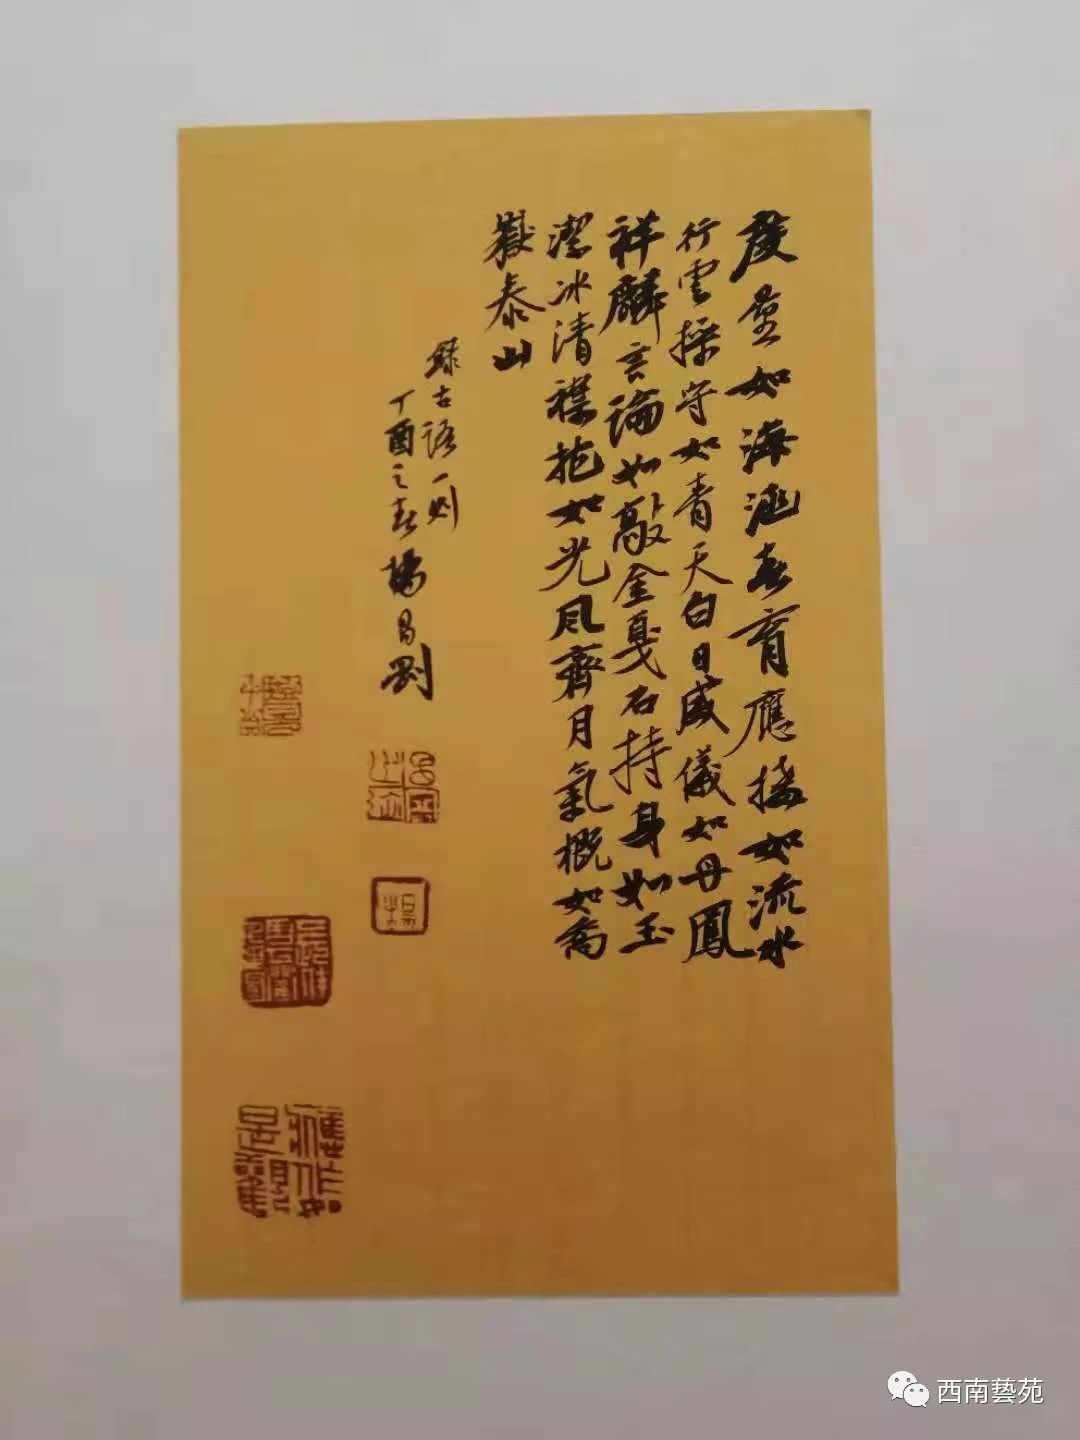 度量如海涵春育應接如流水
行雲操守如青天白日威儀如丹鳳
祥麟言論如敲金戛石持身如玉
潔冰清襟抱如光風霽月氣概如喬
嶽泰山
錄古語一則
丁酉之春楊昌剛
西南藝苑